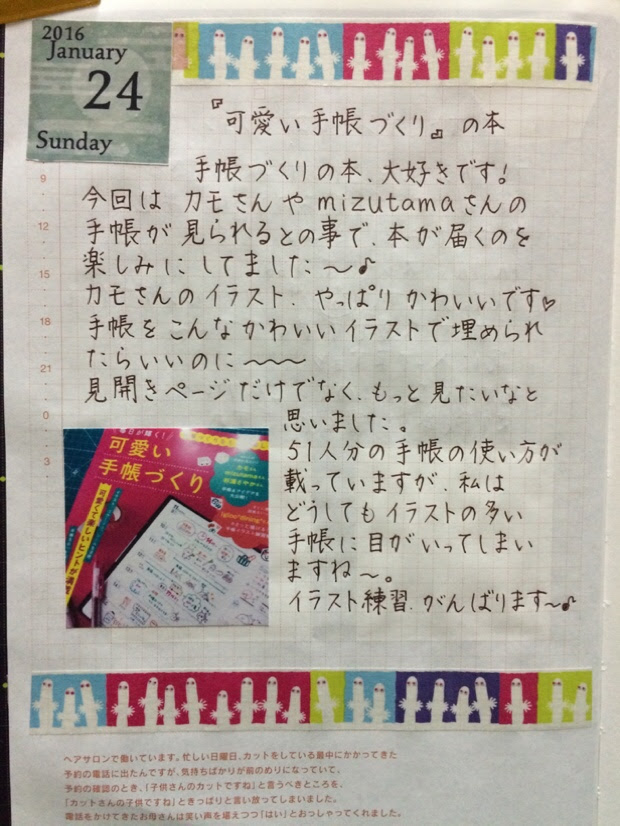 2016
January
24
Sunday
『可愛い手帳づくり』の本
手帳づくりの本、大好きです!
今回は カモさんや mizutamaさんの
手帳が見られるとの事で、本が届くのを
楽しみにしてました〜♪
カモさんのイラスト、やっぱりかわいいです♡
手帳をこんなかわいいイラストで埋められ
たらいいのに〜〜〜
見開きページだけでなく、もっと見たいなと
思いました。
51人分の手帳の使い方が
載っていますが、私は
どうしてもイラストの多い
手帳に目がいってしまい
ますね〜。
イラスト練習、がんばります〜♪
9
12
15
18
21
0
3
毎日が輝く!
可愛い
手帳づくり
可愛くて楽しいヒントが満載
ヘアサロンで働いています。忙しい日曜日、カットをしている最中にかかってきた
予約の電話に出たんですが、気持ちばかりが前のめりになっていて、
予約の確認のとき、「子供さんのカットですね」と言うべきところを、
「カットさんの子供ですね」ときっぱりと言い放ってしまいました。
電話をかけてきたお母さんは笑い声を堪えつつ「はい」とおっしゃってくれました。